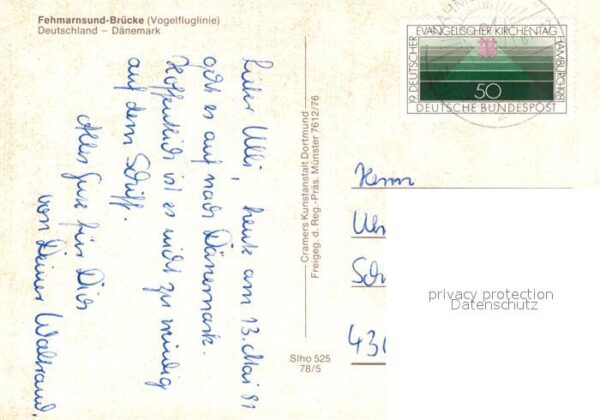 Fehmarnsund-Brücke (Vogelfluglinie)
Deutschland – Dänemark
Lieber Ulli, heute am 13. Mai 81
geht es auf nach Dänemark.
Hoffentlich ist es nicht zu windig
auf dem Schiff.
Alles Gute für Dich
von Deiner Waltraud.
Cramers Kunstanstalt Dortmund
Freigeg. d. Reg.-Präs. Münster 7612/76
Slho 525
78/5
19. DEUTSCHER EVANGELISCHER KIRCHENTAG HAMBURG 1981
50
DEUTSCHE BUNDESPOST
Herrn
Sch
43
privacy protection
Datenschutz